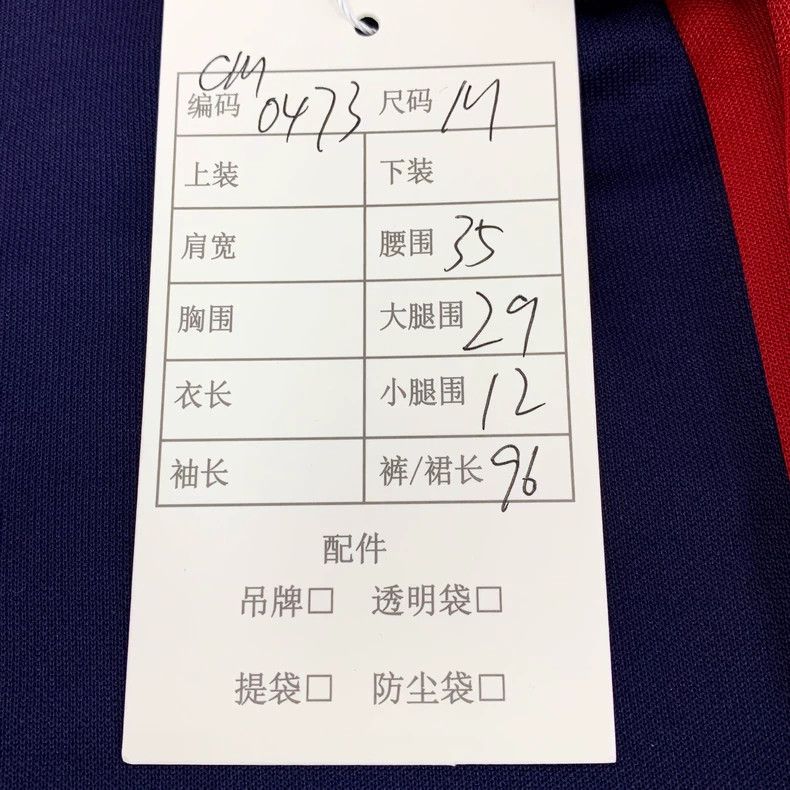 CM
编码 0473 尺码 M
上装 下装
肩宽 腰围 35
胸围 大腿围 29
衣长 小腿围 12
袖长 裤/裙长 96
配件
吊牌□ 透明袋□
提袋□ 防尘袋□